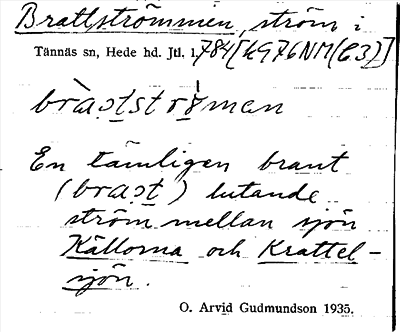 Brattströmmen, ström i
Tännäs sn, Hede hd. Jtl. 1784[kG76NM(C3)]
bràɔtstrømən
En tämligen brant
(braɔt) lutande
ström mellan sjön
Källorna och Krattel-
sjön.
O. Arvid Gudmundson 1935.